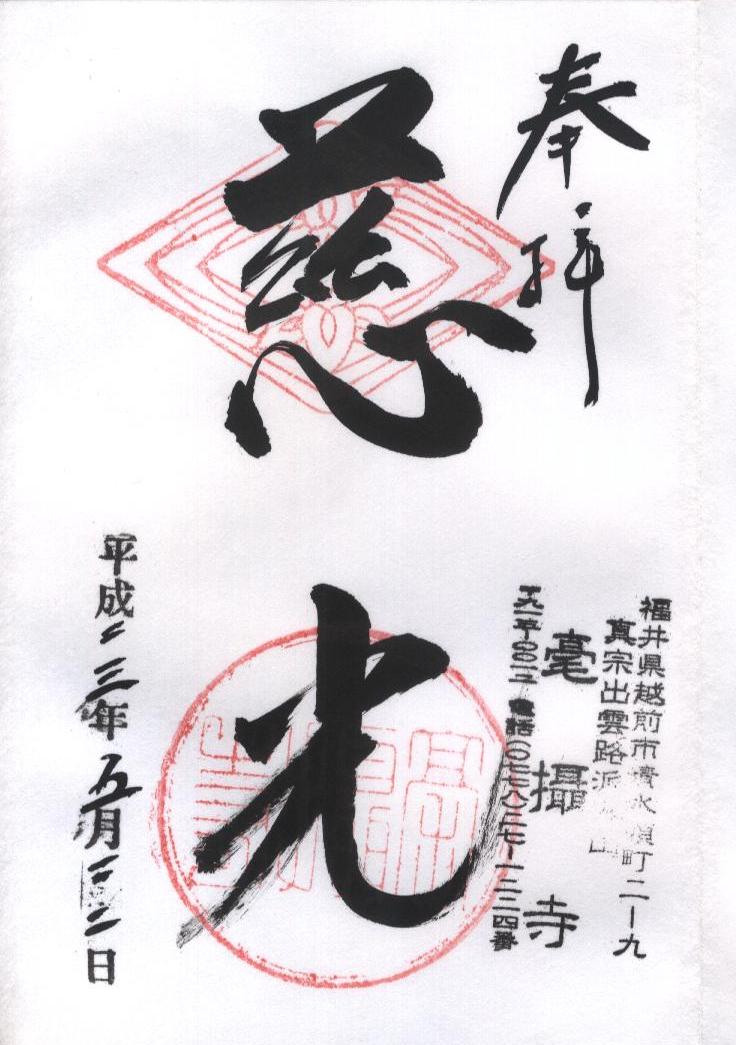 奉拝
慈光
福井県越前市清水頭町二ー九
真宗出雲路派本山
毫攝寺
電話(〇七七八)二七ー一二二四番
平成二三年五月二二日